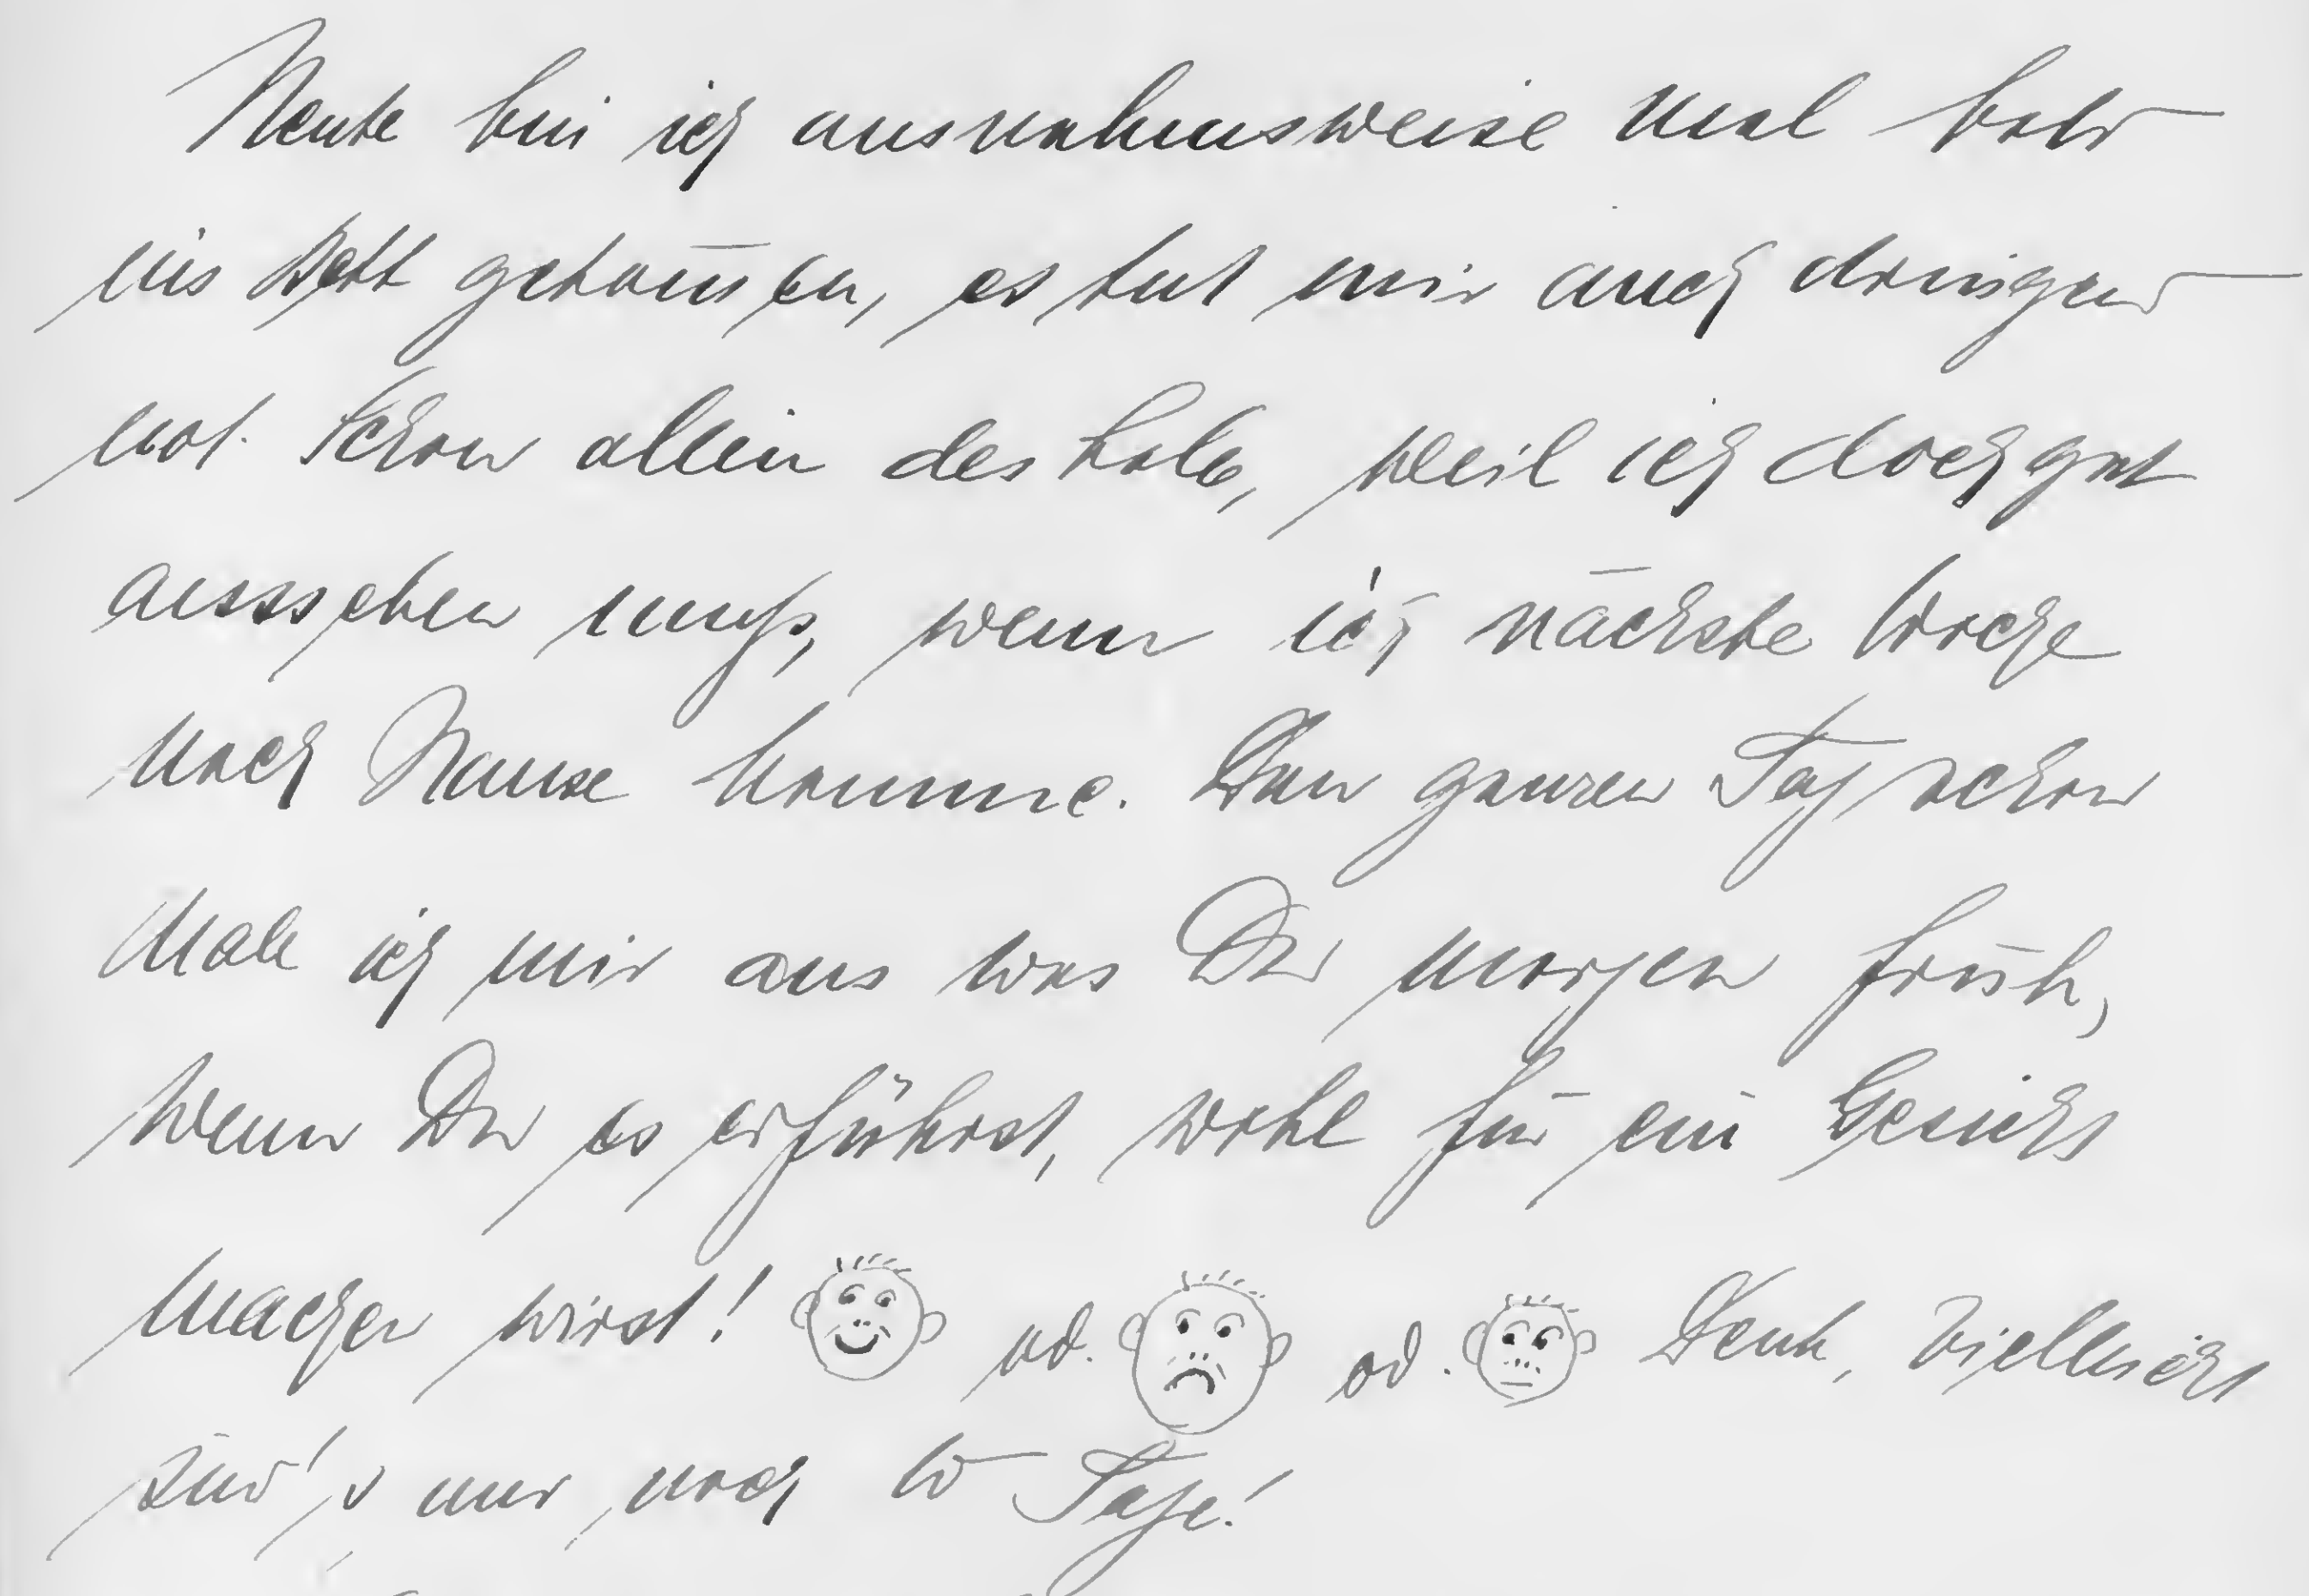 Heute bin ich ausnahmsweise mal bald
ins Bett gekom̅en, es tut mir auch dringend
not. Schon allein deshalb, weil ich doch gut
aussehen muß, wenn ich nächste Woche
nach Hause komme. Den ganzen Tag schon
male ich mir aus was Du morgen früh,
wenn Du es erfährst, wohl für ein Gesicht
machen wirst! od. od. Denk, vielleicht
sind's nur noch Tage!